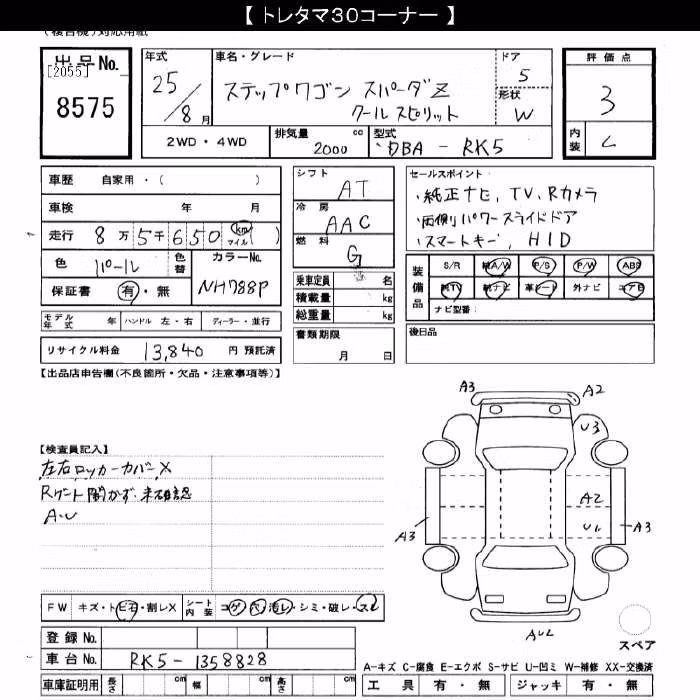 【 トレタマ30コーナー 】
(複合機)対応用紙
出品No.
[2055]
8575
年式
25/8月
車名・グレード
ステップワゴン スパーダZ
クールスピリット
ドア
5
形状
W
評価点
3
内装
C
2WD・4WD
排気量 2000 cc
型式 DBA - RK5
車歴 自家用・( )
車検 年 月
走行 8万5千650 km マイル ( )
色 パール
色替
カラーNo.
NH788P
保証書 有・無
モデル年式 年
ハンドル 左・右
ディーラー・並行
リサイクル料金 13,840 円 預託済
シフト
AT
冷房
AAC
燃料
G
乗車定員 名
積載量 kg
総重量 kg
書類期限
月 日
セールスポイント
・純正ナビ, TV, Rカメラ
・両側パワースライドドア
・スマートキー, HID
装備品
S/R 純A/W P/S P/W ABS
純TV 純ナビ 革シート 外ナビ エアB
ナビ型番:
後日品
【出品店申告欄(不良箇所・欠品・注意事項等)】
【検査員記入】
左右ロッカーカバーX
Rゲート開かず 未確認
A・U
A3
A2
U3
A2
A3
A3
AU2
FW キズ・トビ石・割レX
シート内装 コゲ・穴・汚レ・シミ・破レ・スレ
登録No.
車台No. RK5-1358828
車庫証明用 長さ cm 幅 cm 高さ cm
スペア
A-キズ C-腐食 E-エクボ S-サビ U-凹ミ W-補修 XX-交換済
工具 有・無 ジャッキ 有・無